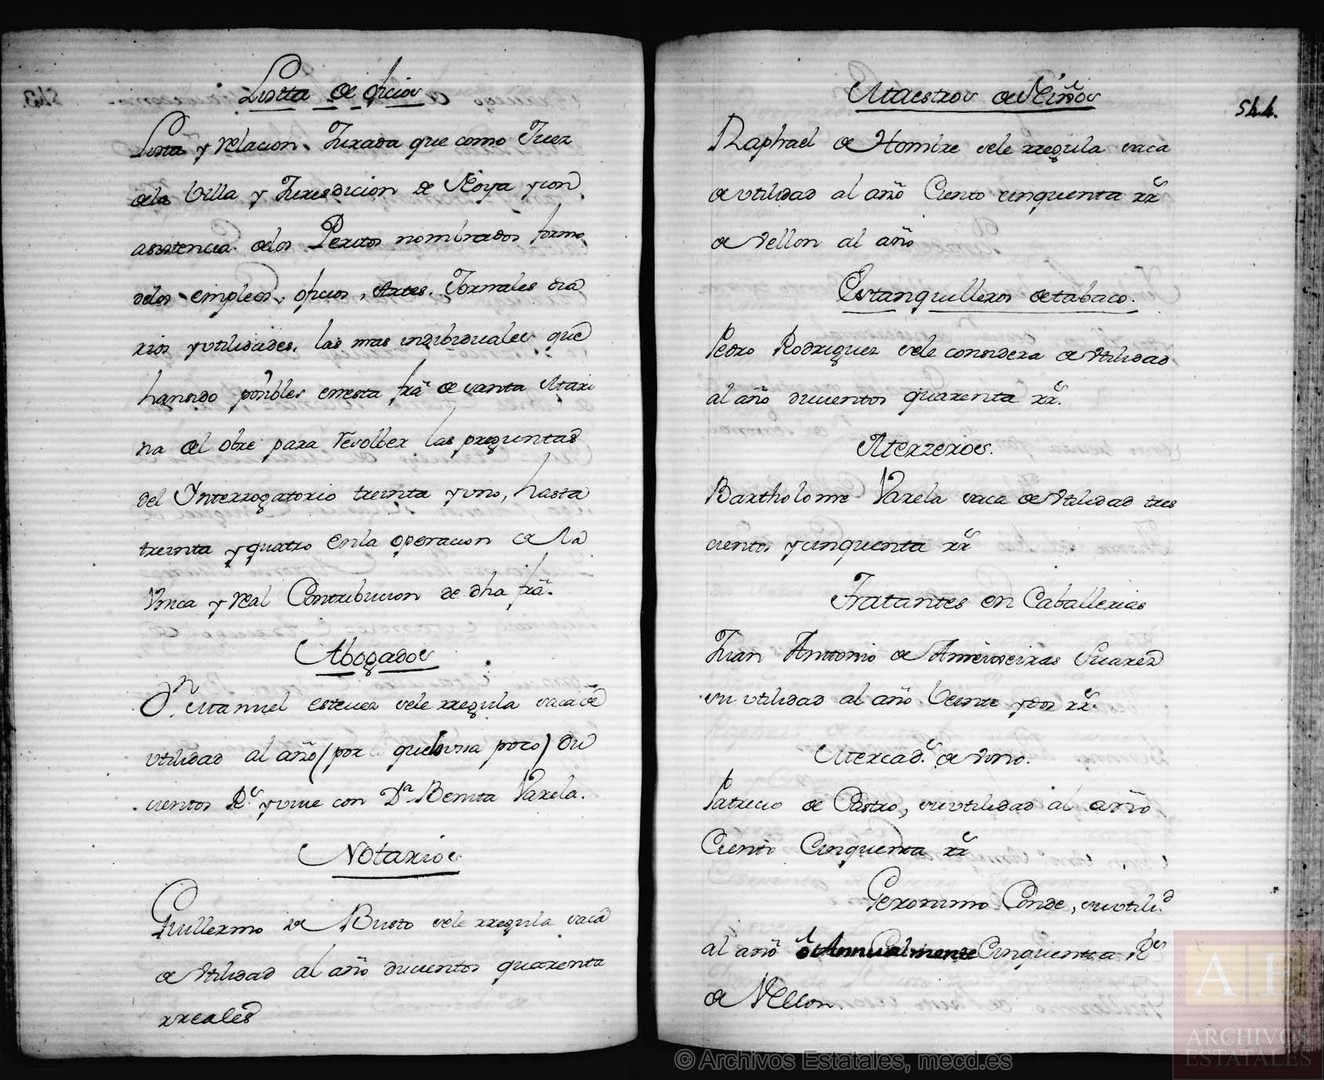 Lista de oficios
Lista y relacion Jurada que como Juez
dela Villa y Jurisdicion de Noya y con
asistencia delos Peritos nombrados formo
delos empleos, oficios, Artes, Jornales dia
rios y utilidades, las mas indibiduales que
han sido posibles en esta frã. de santa Mari
na del Obre para resolber las preguntas
del Interrogatorio treinta y uno, hasta
treinta y quatro en la operacion de la
Vnica y real Contribucion de dha frã.
Abogados
Dn. Manuel estevez sele rregula saca de
utilidad al año (por que usa poco) Du
cientos Rs. y vive con Da. Benita Varela.
Notarios
Guillermo de Busto sele rregula saca
de Utilidad al año ducientos quarenta
rreales
Maestros de Niños
Raphael de Hombre sele rregula saca
de utilidad al año Ciento cinquenta rrs
de vellon al año
Estanquilleros de tabaco.
Pedro Rodriguez sele considera de utilidad
al año ducientos quarenta rrs.
Aterzeros.
Bartholome Varela saca de Utilidad tres
cientos y cinquenta rrs
Tratantes en Caballerias
Juan Antonio de Ameixeiras Suarez
su utilidad al año Veinte y dos rrs.
Mercads. de vino.
Patricio de Castro, su utilidad al año
Ciento Cinquenta rrs
Geronimo Conde, su utilid.
al año Cinquenta Rs
de Vellon.
544.
© Archivos Estatales, mecd.es
AE
ARCHIVOS
ESTATALES